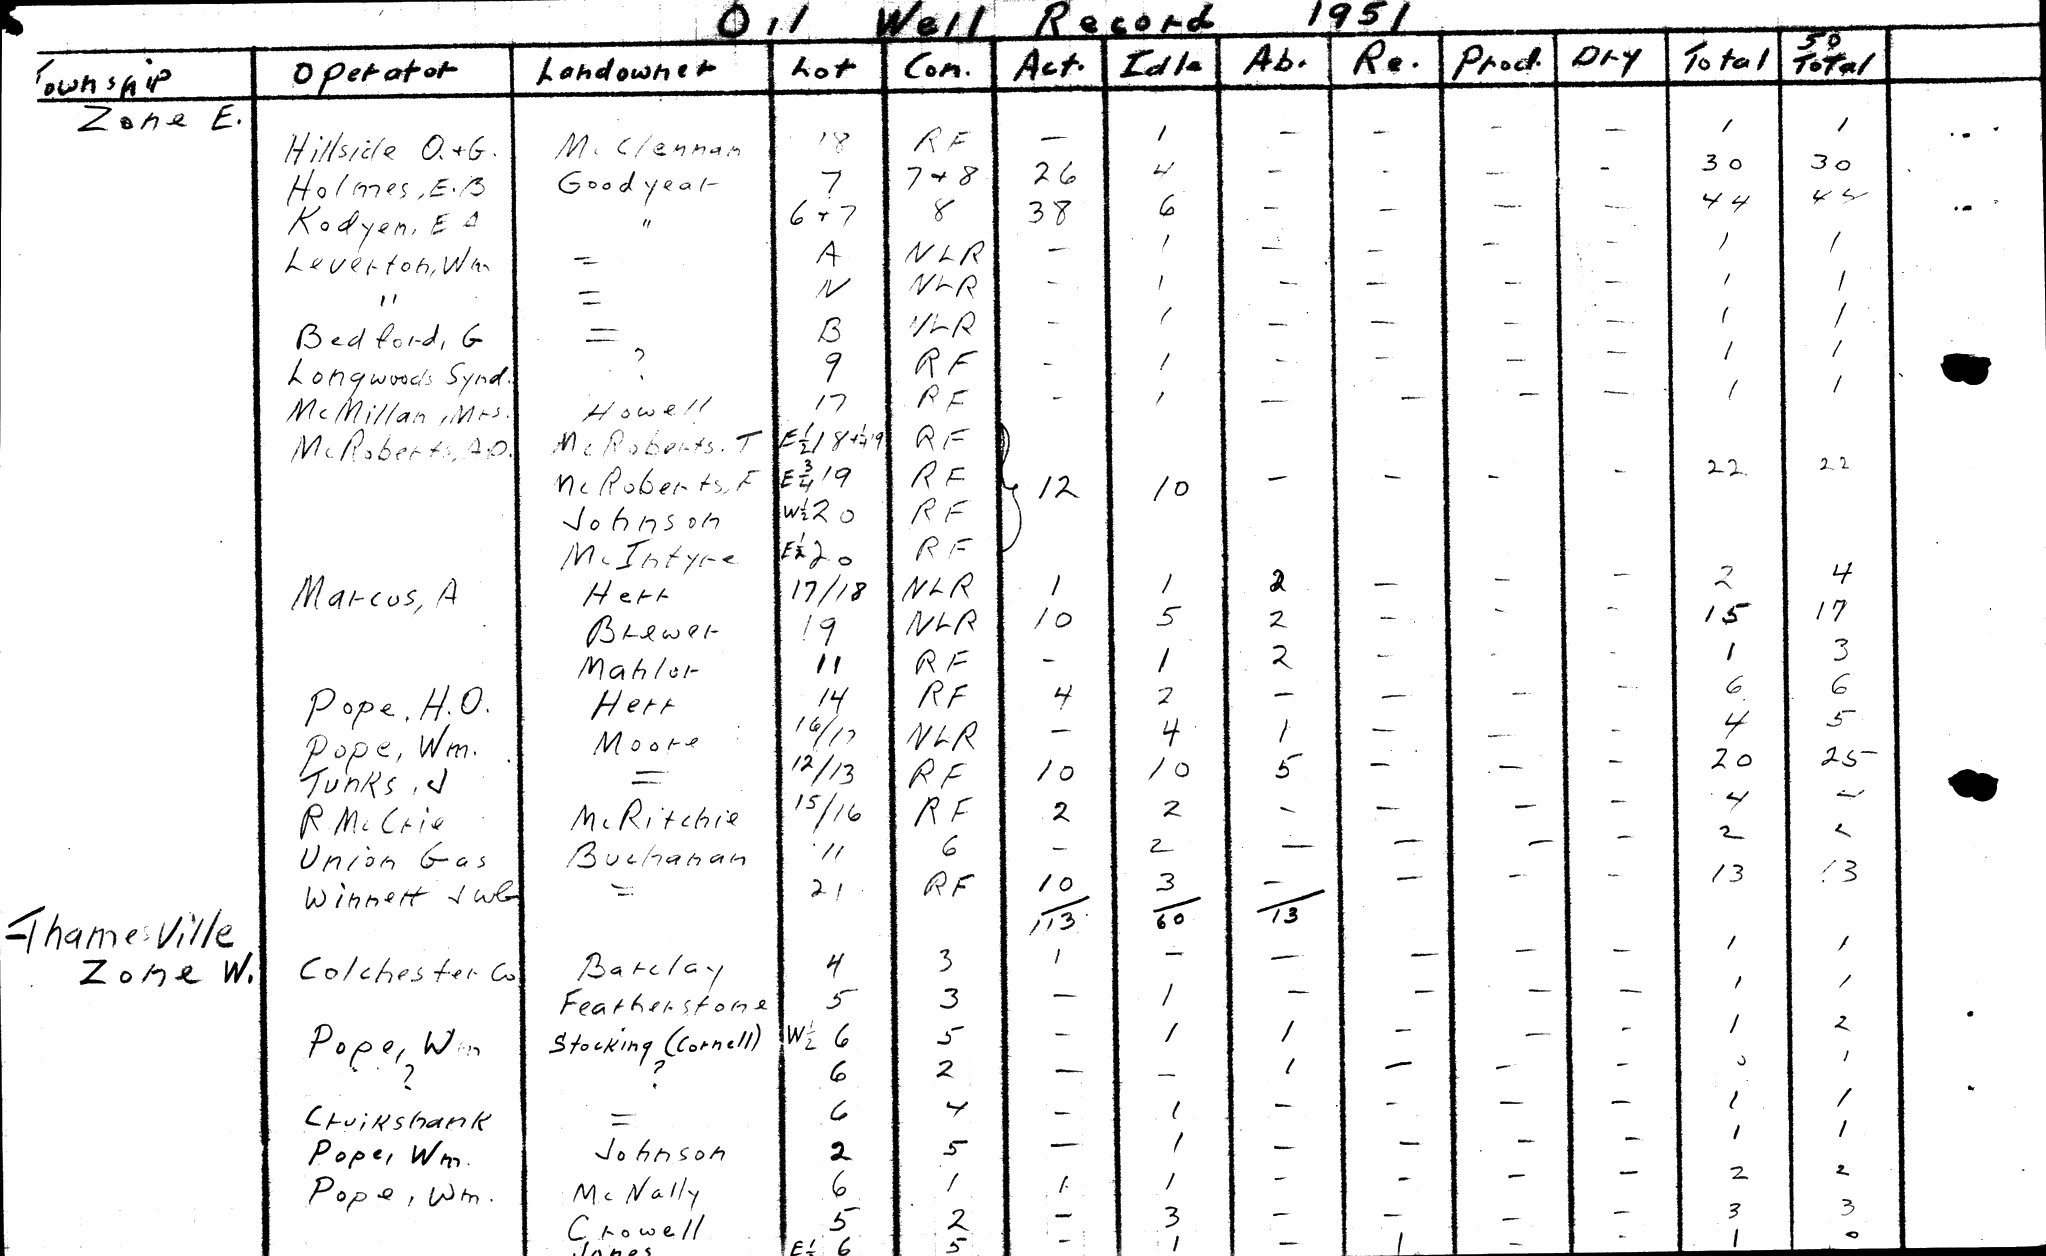 Oil Well Record 1951
Township Operator Landowner Lot Con. Act. Idle Ab. Re. Prod. Dry Total 50 Total
Zone E.
Hillside O.+G. McClennan 18 RF — 1 — — — — 1 1
Holmes, E.B Goodyear 7 7+8 26 4 — — — — 30 30
Kodyen, E A " 6+7 8 38 6 — — — — 44 44
Leverton, Wm = A NLR — 1 — — — — 1 1
" = N NLR — 1 — — — — 1 1
Bedford, G = B NLR — 1 — — — — 1 1
Longwoods Synd. ? 9 RF — 1 — — — — 1 1
McMillan, Mrs. Howell 17 RF — 1 — — — — 1 1
McRoberts, A.D. McRoberts. T E½18+¼19 RF
McRoberts, F E¾19 RF 12 10 — — — — 22 22
Johnson W½20 RF
McIntyre E½20 RF
Marcus, A Herr 17/18 NLR 1 1 2 — — — 2 4
Brewer 19 NLR 10 5 2 — — — 15 17
Mahlor 11 RF — 1 2 — — — 1 3
Pope, H.O. Herr 14 RF 4 2 — — — — 6 6
Pope, Wm. Moore 16/17 NLR — 4 1 — — — 4 5
Tunks, J = 12/13 RF 10 10 5 — — — 20 25
R McCrie McRitchie 15/16 RF 2 2 — — — — 4 4
Union Gas Buchanan 11 6 — 2 — — — — 2 2
Winnett J WG = 21 RF 10 3 — — — — 13 13
113 60 13
Thamesville
Zone W. Colchester Co Barclay 4 3 1 — — — — — 1 1
Featherstone 5 3 — 1 — — — — 1 1
Pope, Wm Stocking (Cornell) W½ 6 5 — 1 1 — — — 1 2
? ? 6 2 — — 1 — — — 0 1
Cruikshank = 6 4 — 1 — — — — 1 1
Pope, Wm. Johnson 2 5 — 1 — — — — 1 1
Pope, Wm. McNally 6 1 1 1 — — — — 2 2
Crowell 5 2 — 3 — — — — 3 3
Jones E½ 6 5 — 1 — 1 — — 1 0